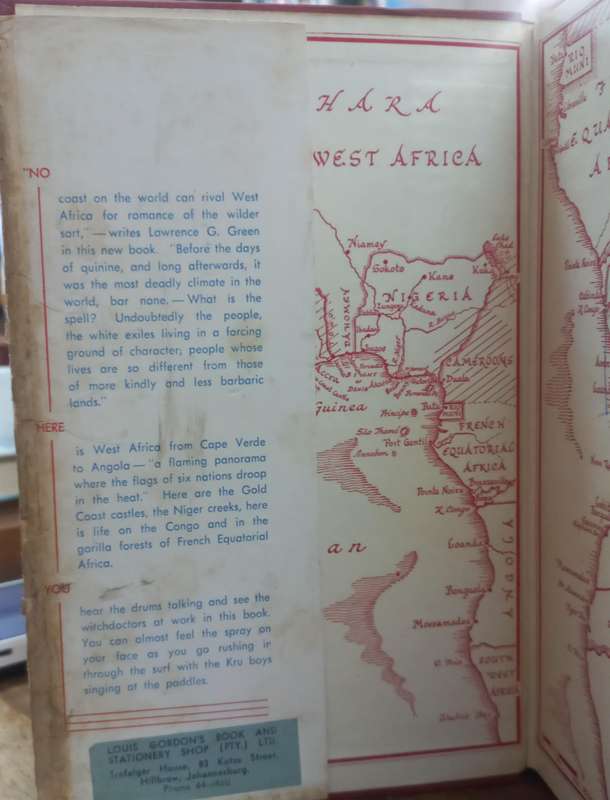 "NO
coast on the world can rival West
Africa for romance of the wilder
sort," — writes Lawrence G. Green
in this new book. "Before the days
of quinine, and long afterwards, it
was the most deadly climate in the
world, bar none. — What is the
spell? Undoubtedly the people,
the white exiles living in a forcing
ground of character; people whose
lives are so different from those
of more kindly and less barbaric
lands."
HERE
is West Africa from Cape Verde
to Angola — "a flaming panorama
where the flags of six nations droop
in the heat." Here are the Gold
Coast castles, the Niger creeks, here
is life on the Congo and in the
gorilla forests of French Equatorial
Africa.
YOU
hear the drums talking and see the
witchdoctors at work in this book.
You can almost feel the spray on
your face as you go rushing ir
through the surf with the Kru boys
singing at the paddles.
LOUIS GORDON'S BOOK AND
STATIONERY SHOP (PTY.) LTD.
Trafalgar House, 83 Kotze Street,
Hillbrow, Johannesburg.
Phone
HARA
WEST AFRICA
Niamey
Sokoto
Kano
NIGERIA
DAHOMEY
Accra
CAMEROONS
Duala
Guinea
Principe
Bata
RIO
MUNI
São Thomé
FRENCH
Port Gentil
EQUATORIAL
AFRICA
Annobon
Brazzaville
Pointe Noire
R. Congo
an
Loanda
ANGOLA
Benguela
Mossamedes
SOUTH
WEST
AFRICA
RIO
MUNI